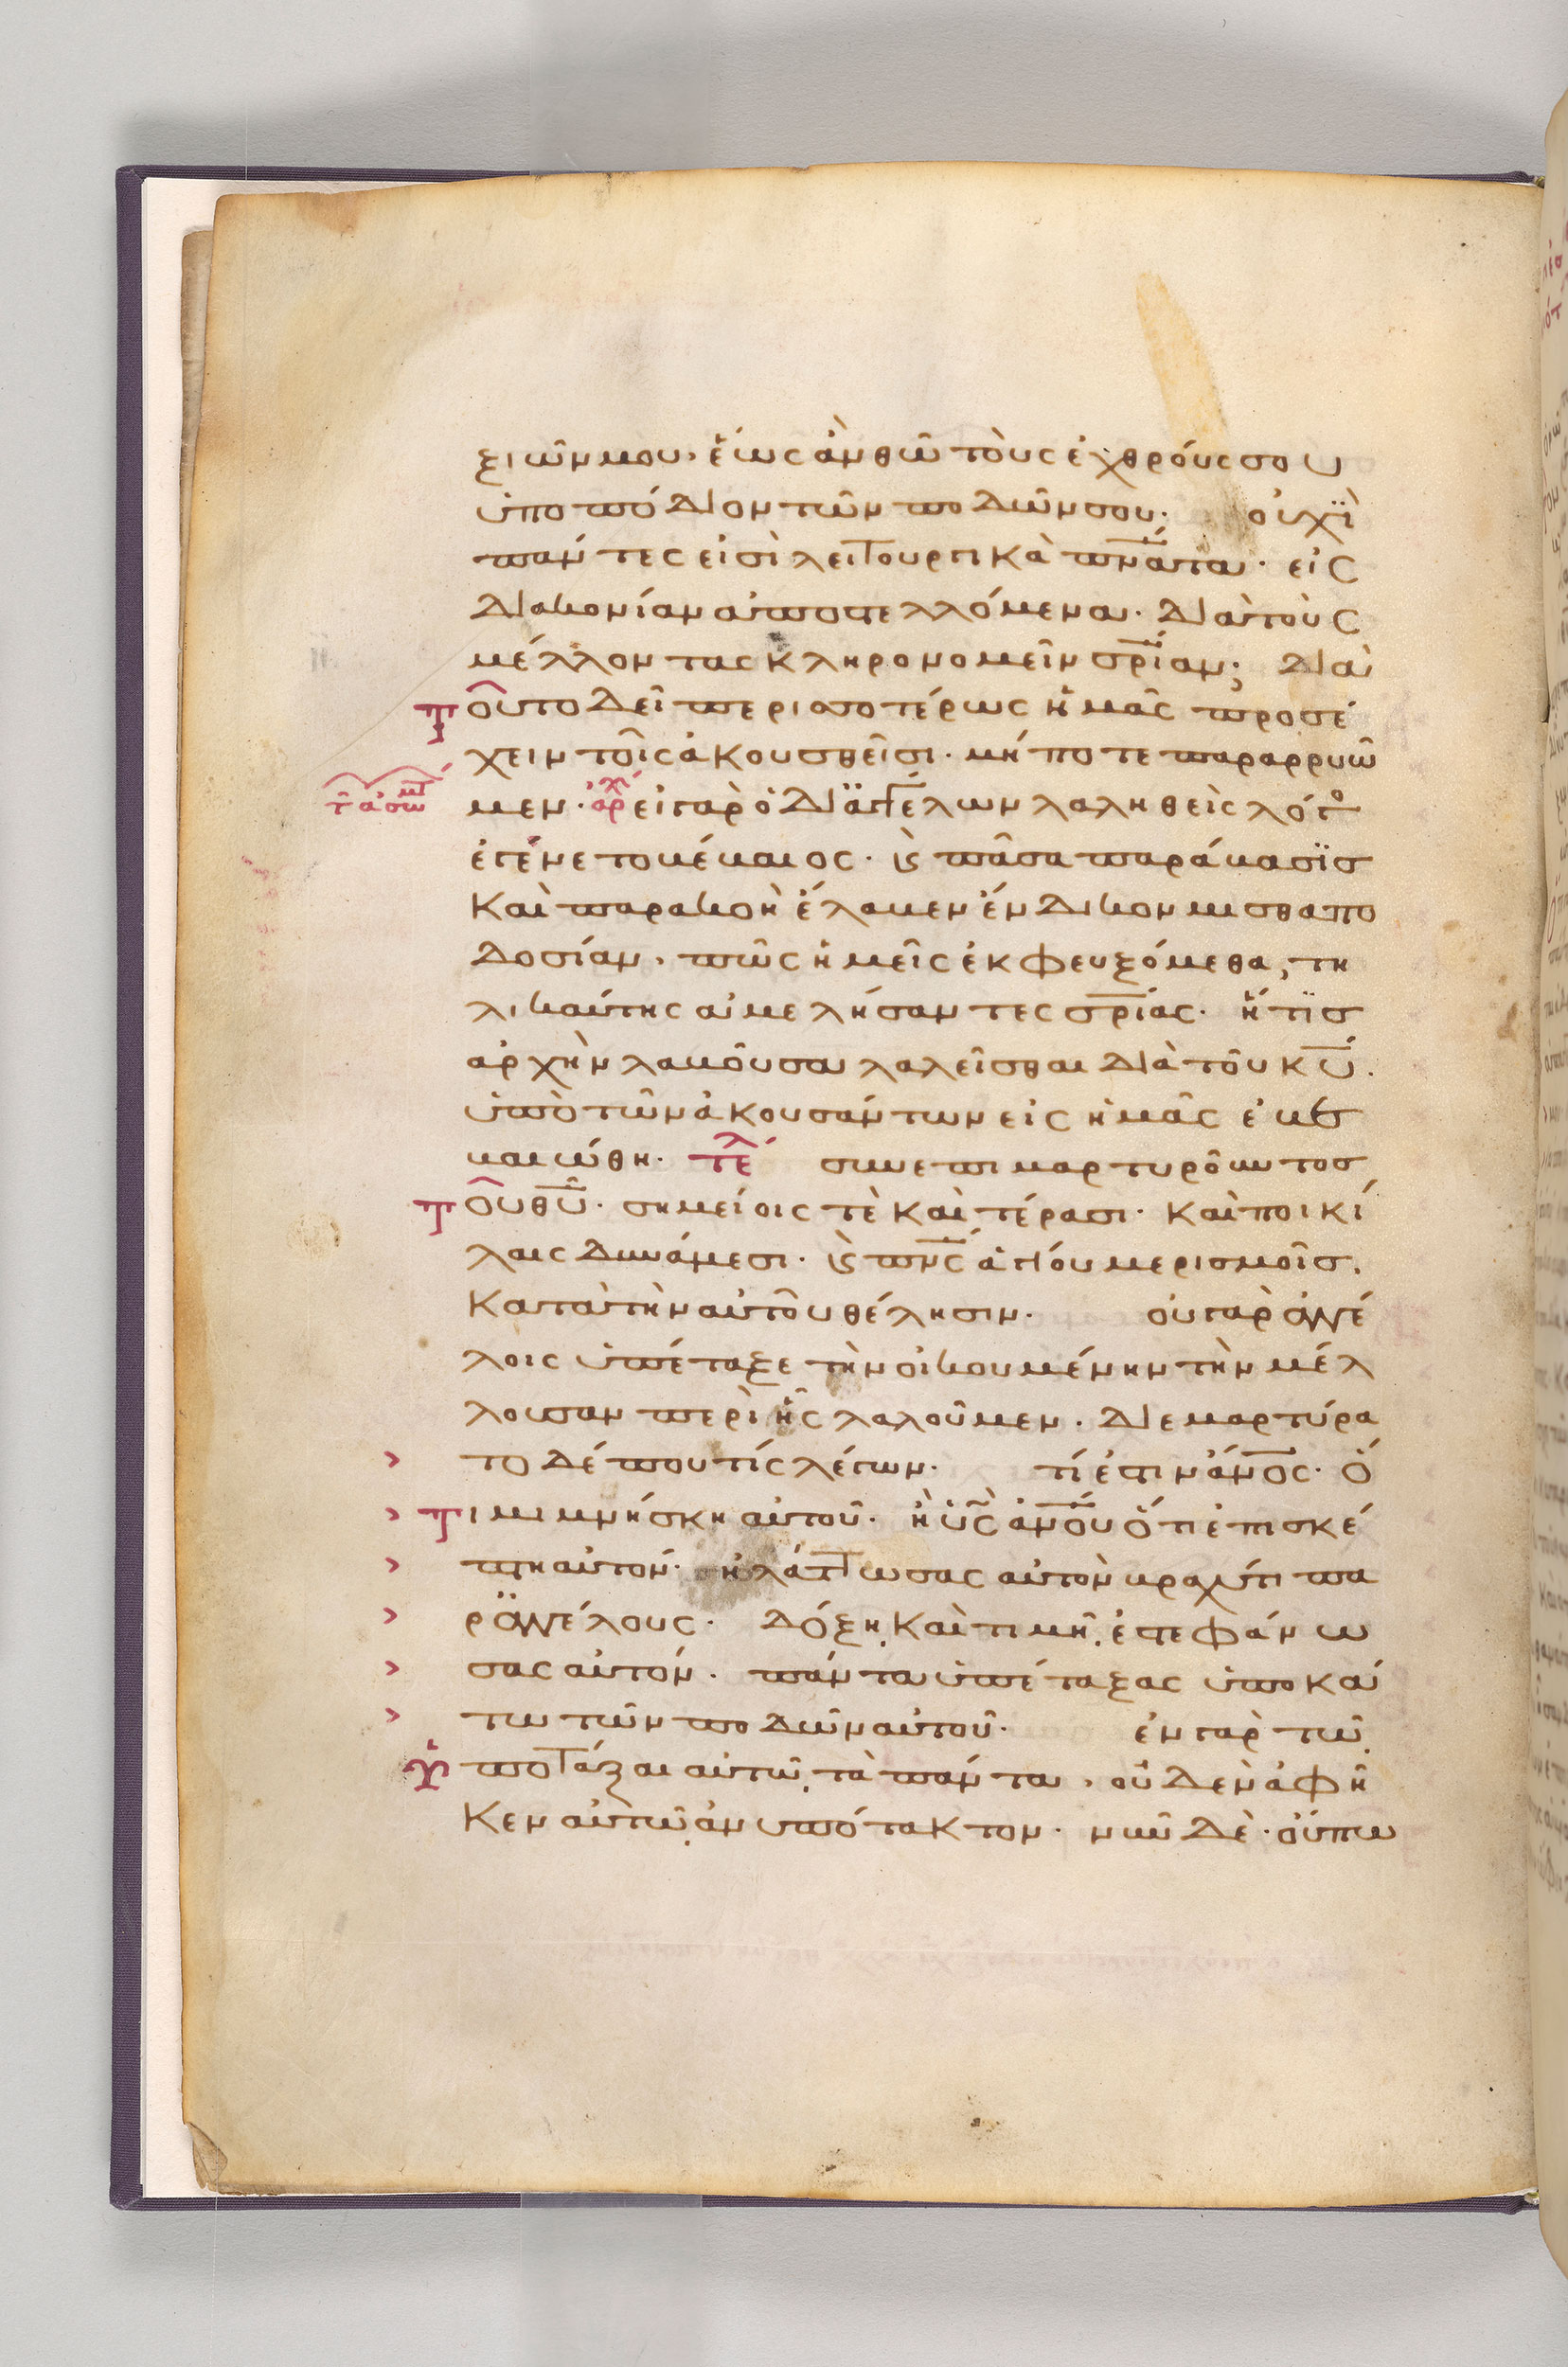 ξιῶν μου· ἕως ἂν θῶ τοὺς ἐχθρούς σου
ὑποπόδιον τῶν ποδῶν σου· οὐχὶ
πάντες εἰσὶ λειτουργικὰ πν̅ατα· εἰς
διακονίαν ἀποστελλόμενα· διὰ τοὺς
μέλλοντας κληρονομεῖν σρ̅ίαν; διὰ
τοῦτο δεῖ περισσοτέρως ἡμᾶς προσέ
χειν τοῖς ἀκουσθεῖσι· μήποτε παραρρυῶ
μεν· ἀρχ εἰ γὰρ ὁ δι' ἀγγέλων λαληθεὶς λόγο
ἐγένετο βέβαιος· ϗ πᾶσα παράβασϊς
καὶ παρακοὴ ἔλαβεν ἔνδικον μισθαπο
δοσίαν· πῶς ἡμεῖς ἐκφευξόμεθα, τη
λικαύτης ἀμελήσαντες σρ̅ίας· ἥτϊς
ἀρχὴν λαβοῦσα λαλεῖσθαι διὰ τοῦ κ̅υ̅·
ὑπὸ τῶν ἀκουσάντων εἰς ἡμᾶς ἐβε
βαιώθη· τελ συνεπιμαρτυροῦντος
τοῦ θ̅υ̅· σημείοις τὲ καὶ τέρασι· καὶ ποικί
λαις δυνάμεσι· ϗ πν̅ς ἁγίου μερισμοῖς·
κατὰ τὴν αὐτοῦ θέλησιν· οὐ γὰρ ἀγγέ
λοις ὑπέταξε τὴν οἰκουμένην τὴν μέλ
λουσαν περὶ ἧς λαλοῦμεν· διεμαρτύρα
> το δέ που τίς λέγων· τί ἐστιν ἄν̅ο̅ς· ὅ
> τι μιμνήσκη αὐτοῦ· ἢ ὑ̅ς̅ ἀν̅ο̅υ ὅτι ἐπισκέ
> πτη αὐτόν· ἠλάττωσας αὐτὸν βραχύ τι πα
> ρ' ἀγγέλους· δόξη καὶ τιμῆ ἐστεφάνω
> σας αὐτόν· πάντα ὑπέταξας ὑποκά
> τω τῶν ποδῶν αὐτοῦ· ἐν γὰρ τῶ
ὑποτάξαι αὐτῶ τὰ πάντα, οὐδὲν ἀφῆ
κεν αὐτῶ ἀνυπότακτον· νῦν δὲ· οὔπω